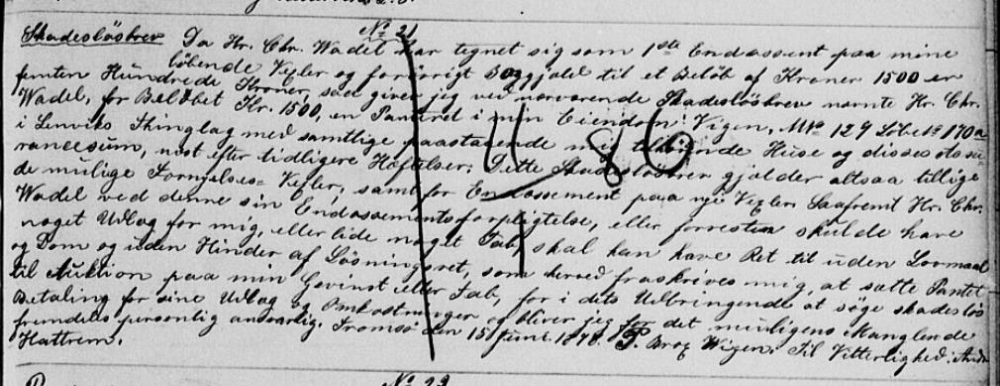 No 21
Skadesløsbrev Da Hr. Chr. Wadel har tegnet sig som 1ste Endossent paa mine
løbende Vexler og forøvrigt Boggjæld til et Beløb af Kroner 1500 er
femten Hundrede Kroner, saa giver jeg ved nærværende Skadesløsbrev nævnte Hr. Chr.
Wadel, for Beløbet Kr. 1500, en Panteret i min Eiendom Vigen, M No 129 Løbe No 170a
i Lenviks Thinglag med samtlige paastaaende mig tilhørende Huse og disses Assu-
rancesum, næst efter tidligere Heftelser. Dette Skadesløsbrev gjælder altsaa tillige
de mulige Fornyelses-Vexler, samt for Endossement paa nye Vexler. Saafremt Hr. Chr.
Wadel ved denne sin Endossementsforpligtelse, eller forresten skulde have
noget Udlæg for mig, eller lide noget Tab, skal han have Ret til uden Lovmaal
og Dom og uden Hinder af Løsningsret, som herved fraskrives mig, at sætte Pantet
til Auktion paa min Gevinst eller Tab, for i dets Udbringende at søge skadesløs
Betaling for sine Udlæg og Omkostninger og bliver jeg for det muligens Manglende
fremdeles personlig ansvarlig. Tromsø den 15 Juni 1878. P. Brox Wigen. Til Vitterlighed:
Hattrem.
4/1 86
No 22